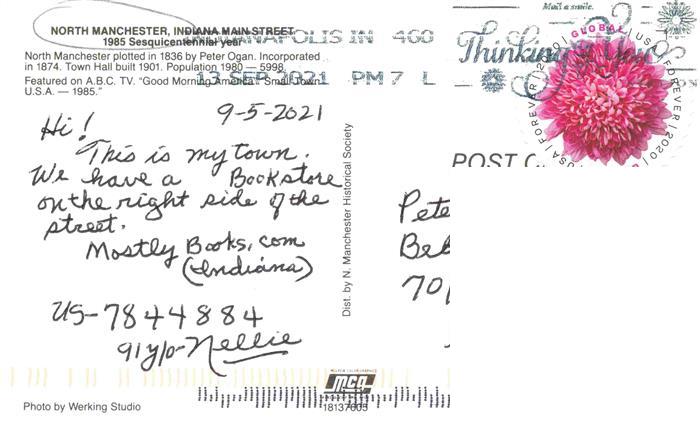 NORTH MANCHESTER, INDIANA MAIN STREET
1985 Sesquicentennial year
North Manchester plotted in 1836 by Peter Ogan. Incorporated
in 1874. Town Hall built 1901. Population 1980 — 5998.
Featured on A.B.C. TV. "Good Morning America" Small Town
U.S.A. — 1985."
INDIANAPOLIS IN 460
13 SEP 2021 PM 7 L
Mail a smile.
Thinking of You
GLOBAL USA / FOREVER / 2020
USA / FOREVER / 2020
POST C
9-5-2021
Hi!
This is my town.
We have a Bookstore
on the right side of the
street.
Mostly Books.com
(Indiana)
US-7844884
91 y/o- Nellie
Dist. by N. Manchester Historical Society
Pete
Be
70
MCA
18137605
Photo by Werking Studio